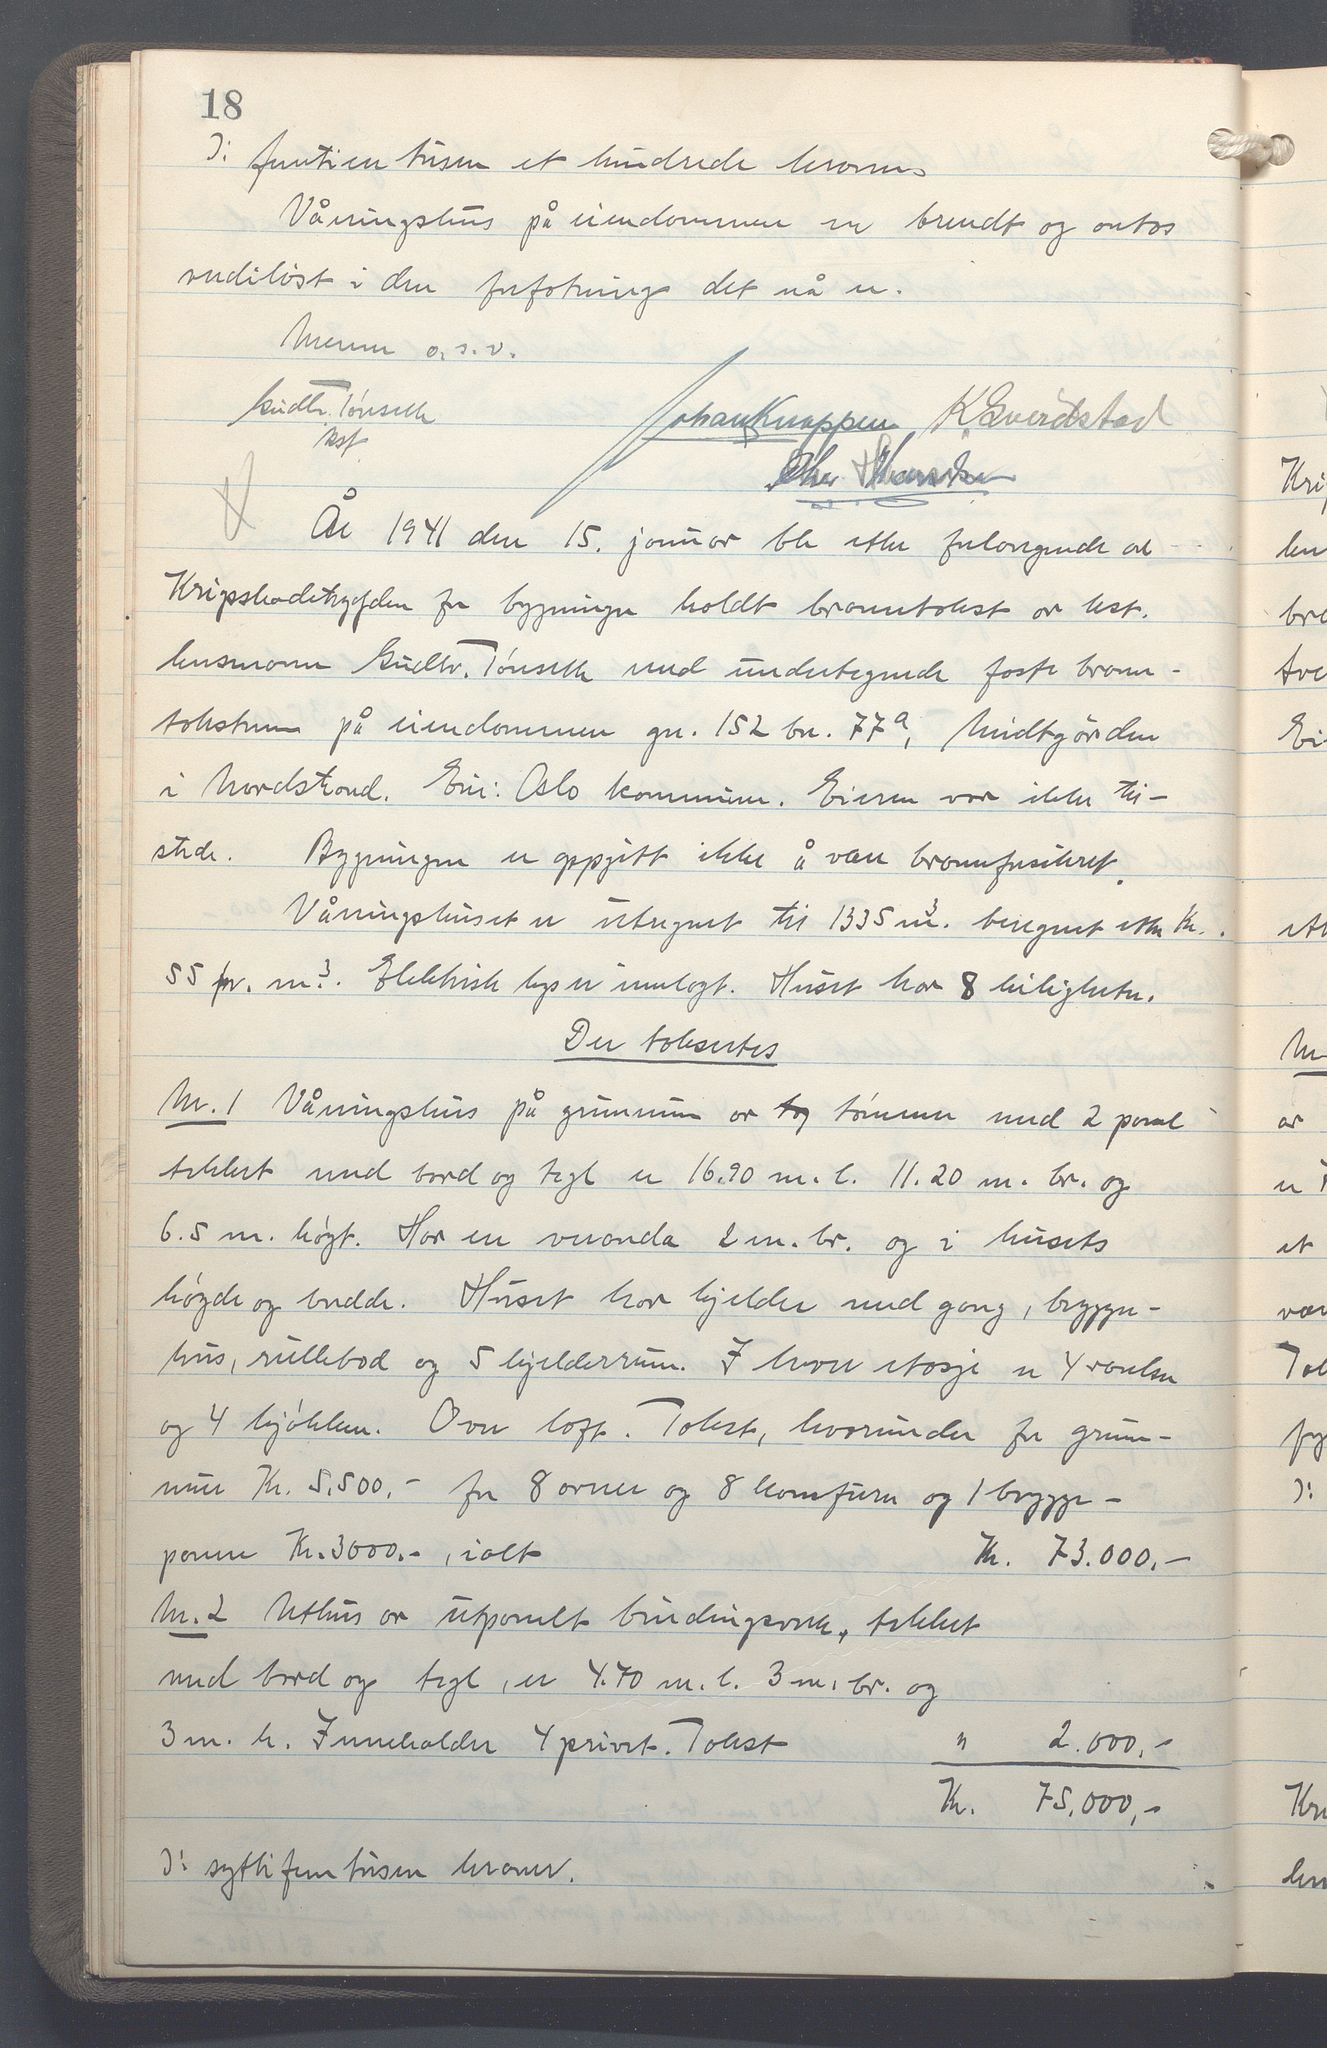 18
ɔ: femtien tusen et hundrede kroner.
Våningshus på eiendommen er brendt og antas
verdiløst i den forfatning det nå er.
Menn o.s.v.
Gudbr. Tønseth Johan Knappen K. Sverdstad
kst.
År 1941 den 15. januar ble etter forlangende av
Krigsskadetrygden for bygninger holdt branntakst av kst.
lensmann Gudbr. Tønseth med undertegnede faste brann-
takstmenn på eiendommen gn. 152 bn. 77a, Midtgården
i Nordstrand. Eier: Oslo kommune. Eieren var ikke til-
stede. Bygningen er oppgitt ikke å være brannforsikret.
Våningshuset er utregnet til 1335 m³. beregnet etter Kr.
55 pr. m³. Elektrisk lys er innlagt. Huset har 8 leiligheter.
Der taksertes
Nr. 1 Våningshus på grunnmur av tømmer med 2 panel
tekket med bord og tegl er 16.90 m. l. 11.20 m. br. og
6.5 m. høgt. Har en veranda 2 m. br. og i husets
høgde og bredde. Huset har kjelder med gang, brygger-
hus, rullebod og 5 kjelderrum. I hver etasje er 4 værelser
og 4 kjøkken. Over loft. Takst, hvorunder for grunn-
mur Kr. 5.500.- for 8 ovner og 8 komfurer og 1 brygge-
panne Kr. 3000.-, ialt Kr. 73.000.-
Nr. 2 Uthus av utpanelt bindingsverk, tekket
med bord og tegl, er 4.70 m. l. 3 m. br. og
3 m. h. Inneholder 4 privet. Takst " 2.000.-
Kr. 75.000,-
ɔ: syttifem tusen kroner.